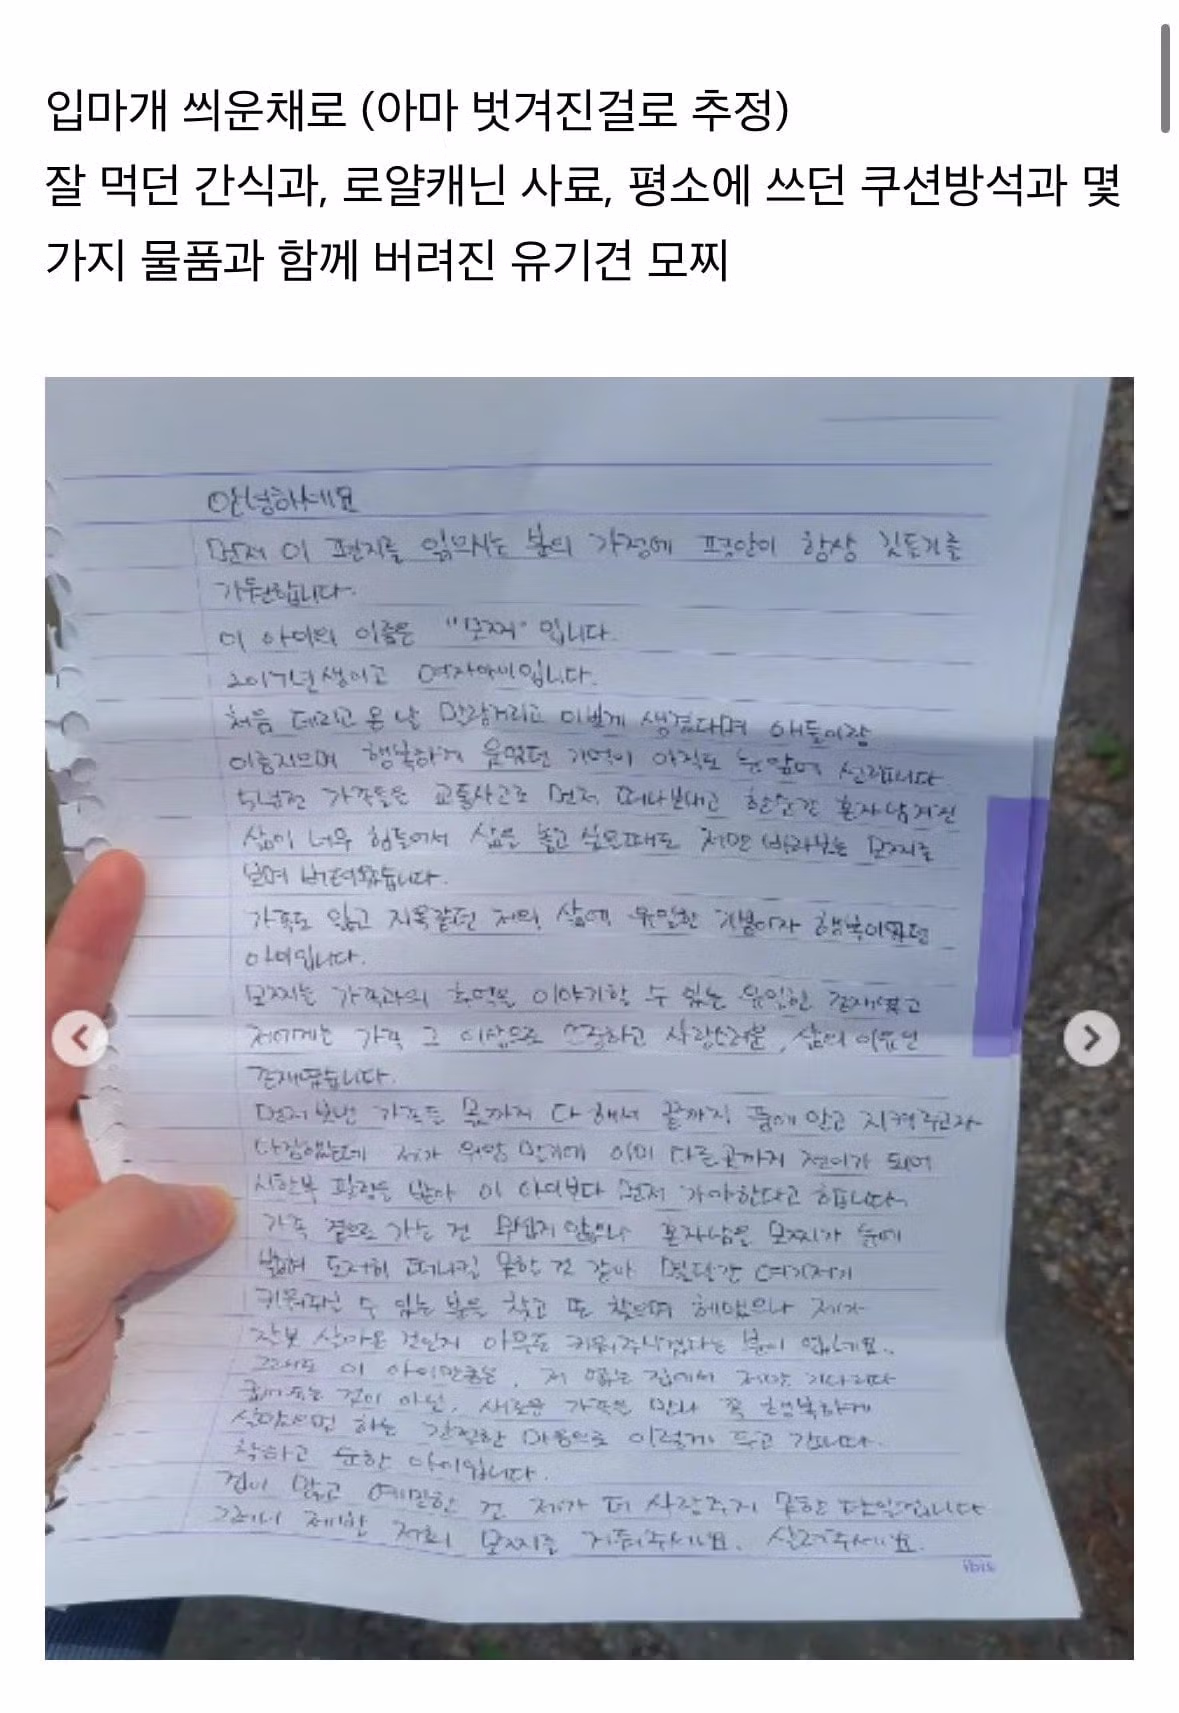 입마개 씌운채로 (아마 벗겨진걸로 추정)
잘 먹던 간식과, 로얄캐닌 사료, 평소에 쓰던 쿠션방석과 몇
가지 물품과 함께 버려진 유기견 모찌
안녕하세요
먼저 이 편지를 읽으시는 분의 가정에 평안이 항상 깃들기를
기원합니다.
이 아이의 이름은 "모찌" 입니다.
2017년생이고 여자아이입니다.
처음 데리고 온 날 말랑거리고 이쁘게 생겼다며 애들이랑
이름지으며 행복하게 웃었던 기억이 아직도 눈앞에 선합니다
5년전 가족들은 교통사고로 먼저 떠나보내고 한순간 혼자남겨진
삶이 너무 힘들어서 삶을 놓고 싶은때도 저만 바라보는 모찌를
보며 버텨왔습니다.
가족도 잃고 지옥같던 저의 삶에 유일한 기쁨이자 행복이었던
아이입니다.
모찌는 가족과의 추억을 이야기할 수 있는 유일한 존재였고
저에게는 가족 그 이상으로 소중하고 사랑스러운, 삶의 이유인
존재였습니다.
먼저보낸 가족들 몫까지 다해서 끝까지 품에 안고 지켜주고자
다짐했는데 제가 위암 말기에 이미 다른곳까지 전이가 되어
시한부 판정을 받아 이 아이보다 먼저 가야한다고 합니다.
가족 곁으로 가는 건 무섭지 않으나 혼자남을 모찌가 눈에
밟혀 도저히 떠나질 못할 것 같아 몇달간 여기저기
키워주실 수 있는 분을 찾고 또 찾으며 헤맸으나 제가
잘못 살아온 것인지 아무도 키워주시겠다는 분이 없네요..
그래도 이 아이만큼은, 저 없는 집에서 저만 기다리다
굶어죽는 것이 아닌, 새로운 가족을 만나 꼭 행복하게
살았으면 하는 간절한 마음으로 이렇게 두고 갑니다.
착하고 순한 아이입니다.
겁이 많고 예민한 건 제가 더 사랑주지 못한 탓일겁니다
그러니 제발 저희 모찌를 거둬주세요. 살려주세요.
ibis